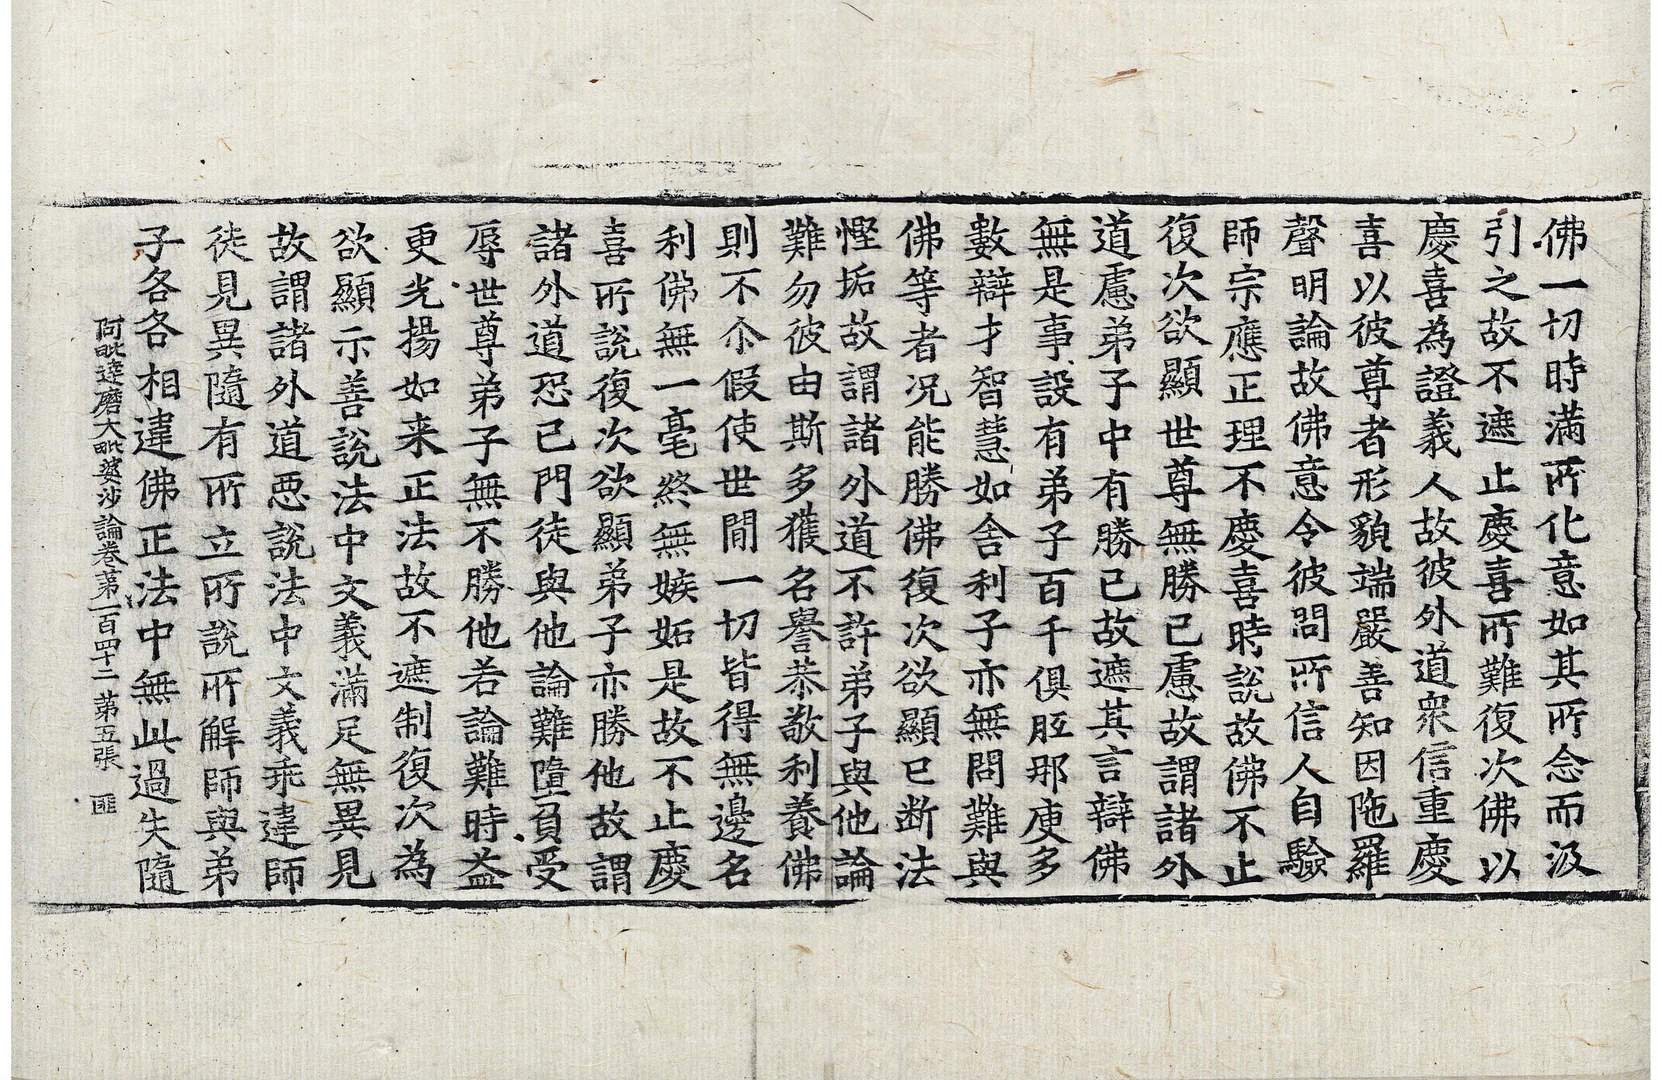 佛一切時滿所化意如其所念而汲
引之故不遮止慶喜所難復次佛以
慶喜為證義人故彼外道眾信重慶
喜以彼尊者形貌端嚴善知因陁羅
聲明論故佛意令彼問所信人自驗
師宗應正理不慶喜時說故佛不止
復次欲顯世尊無勝己慮故謂諸外
道慮弟子中有勝己故遮其言辯佛
無是事設有弟子百千俱胝那庾多
數辯才智慧如舍利子亦無問難與
佛等者况能勝佛復次欲顯已断法
慳垢故謂諸外道不許弟子與他論
難勿彼由斯多獲名譽恭敬利養佛
則不尒假使世間一切皆得無邊名
利佛無一毫終無嫉妬是故不止慶
喜所說復次欲顯弟子亦勝他故謂
諸外道恐已門徒與他論難墮負受
辱世尊弟子無不勝他若論難時益
更光揚如来正法故不遮制復次為
欲顯示善說法中文義滿足無異見
故謂諸外道惡說法中文義乖違師
徒見異隨有所立所說所解師與弟
子各各相違佛正法中無此過失隨
阿毗達磨大毗婆沙論卷苐一百四十二 苐五張 匪